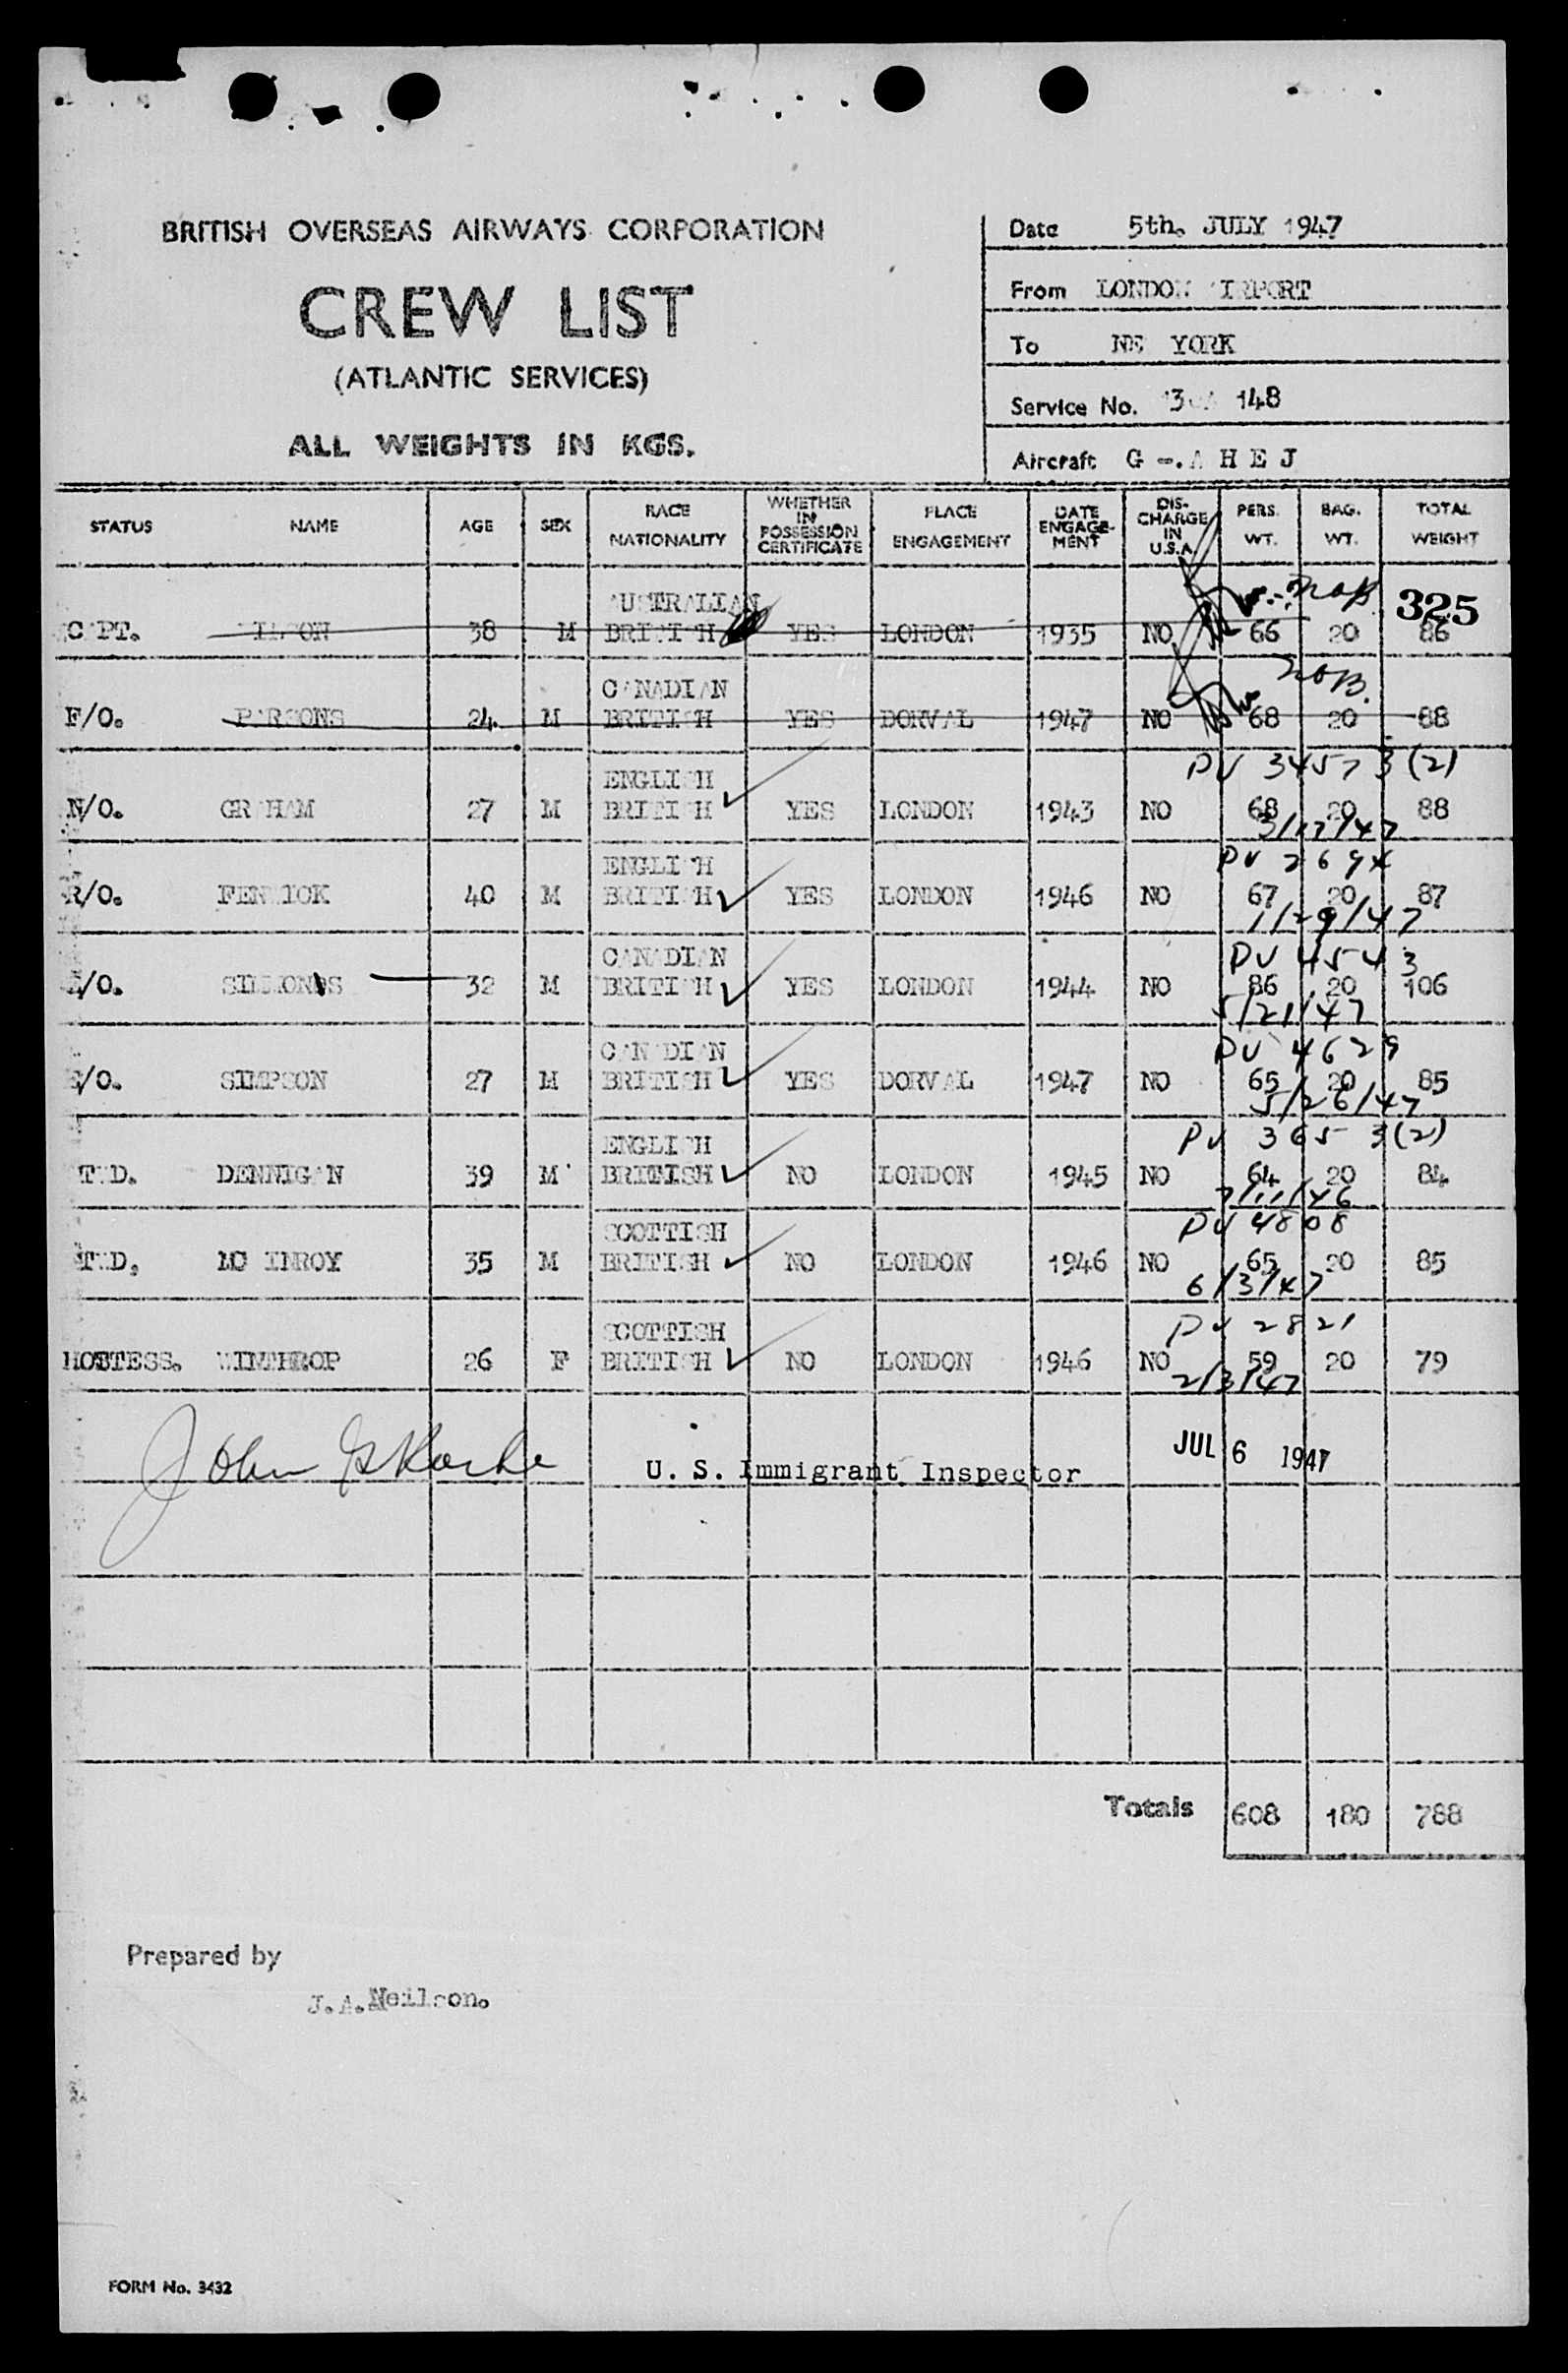 BRITISH OVERSEAS AIRWAYS CORPORATION
CREW LIST
(ATLANTIC SERVICES)
ALL WEIGHTS IN KGS.
Date 5th. JULY 1947
From LONDON AIRPORT
To NEW YORK
Service No. 148
Aircraft G-.A H E J
STATUS NAME AGE SEX RACE NATIONALITY WHETHER IN POSSESSION CERTIFICATE PLACE ENGAGEMENT DATE ENGAGE-MENT DIS-CHARGE IN U.S.A. PERS. WT. BAG. WT. TOTAL WEIGHT
325
AUSTRALIAN
CAPT. 38 M BRITISH YES LONDON 1935 NO 66 20 86
CANADIAN NOB.
F/O. PARSONS 24 M BRITISH YES DORVAL 1947 NO 68 20 88
ENGLISH PV 34573(2)
N/O. GRAHAM 27 M BRITISH YES LONDON 1943 NO 68 20 88
3/17/47
ENGLISH PV 2694
R/O. FENWICK 40 M BRITISH YES LONDON 1946 NO 67 20 87
1/29/47
CANADIAN PV 4543
E/O. SIMMONDS 32 M BRITISH YES LONDON 1944 NO 86 20 106
5/21/47
CANADIAN PV 4629
E/O. SIMPSON 27 M BRITISH YES DORVAL 1947 NO 65 20 85
5/26/47
ENGLISH PV 3653(2)
STWD. DENNIGAN 39 M BRITISH NO LONDON 1945 NO 64 20 84
7/11/46
SCOTTISH PV 4808
STWD. MC INROY 35 M BRITISH NO LONDON 1946 NO 65 20 85
6/3/47
SCOTTISH PV 2821
HOSTESS. WINTHROP 26 F BRITISH NO LONDON 1946 NO 59 20 79
2/3/47
John U. S. Immigrant Inspector JUL 6 1947
Totals 608 180 788
Prepared by
J.A.Neilson.
FORM No. 3432